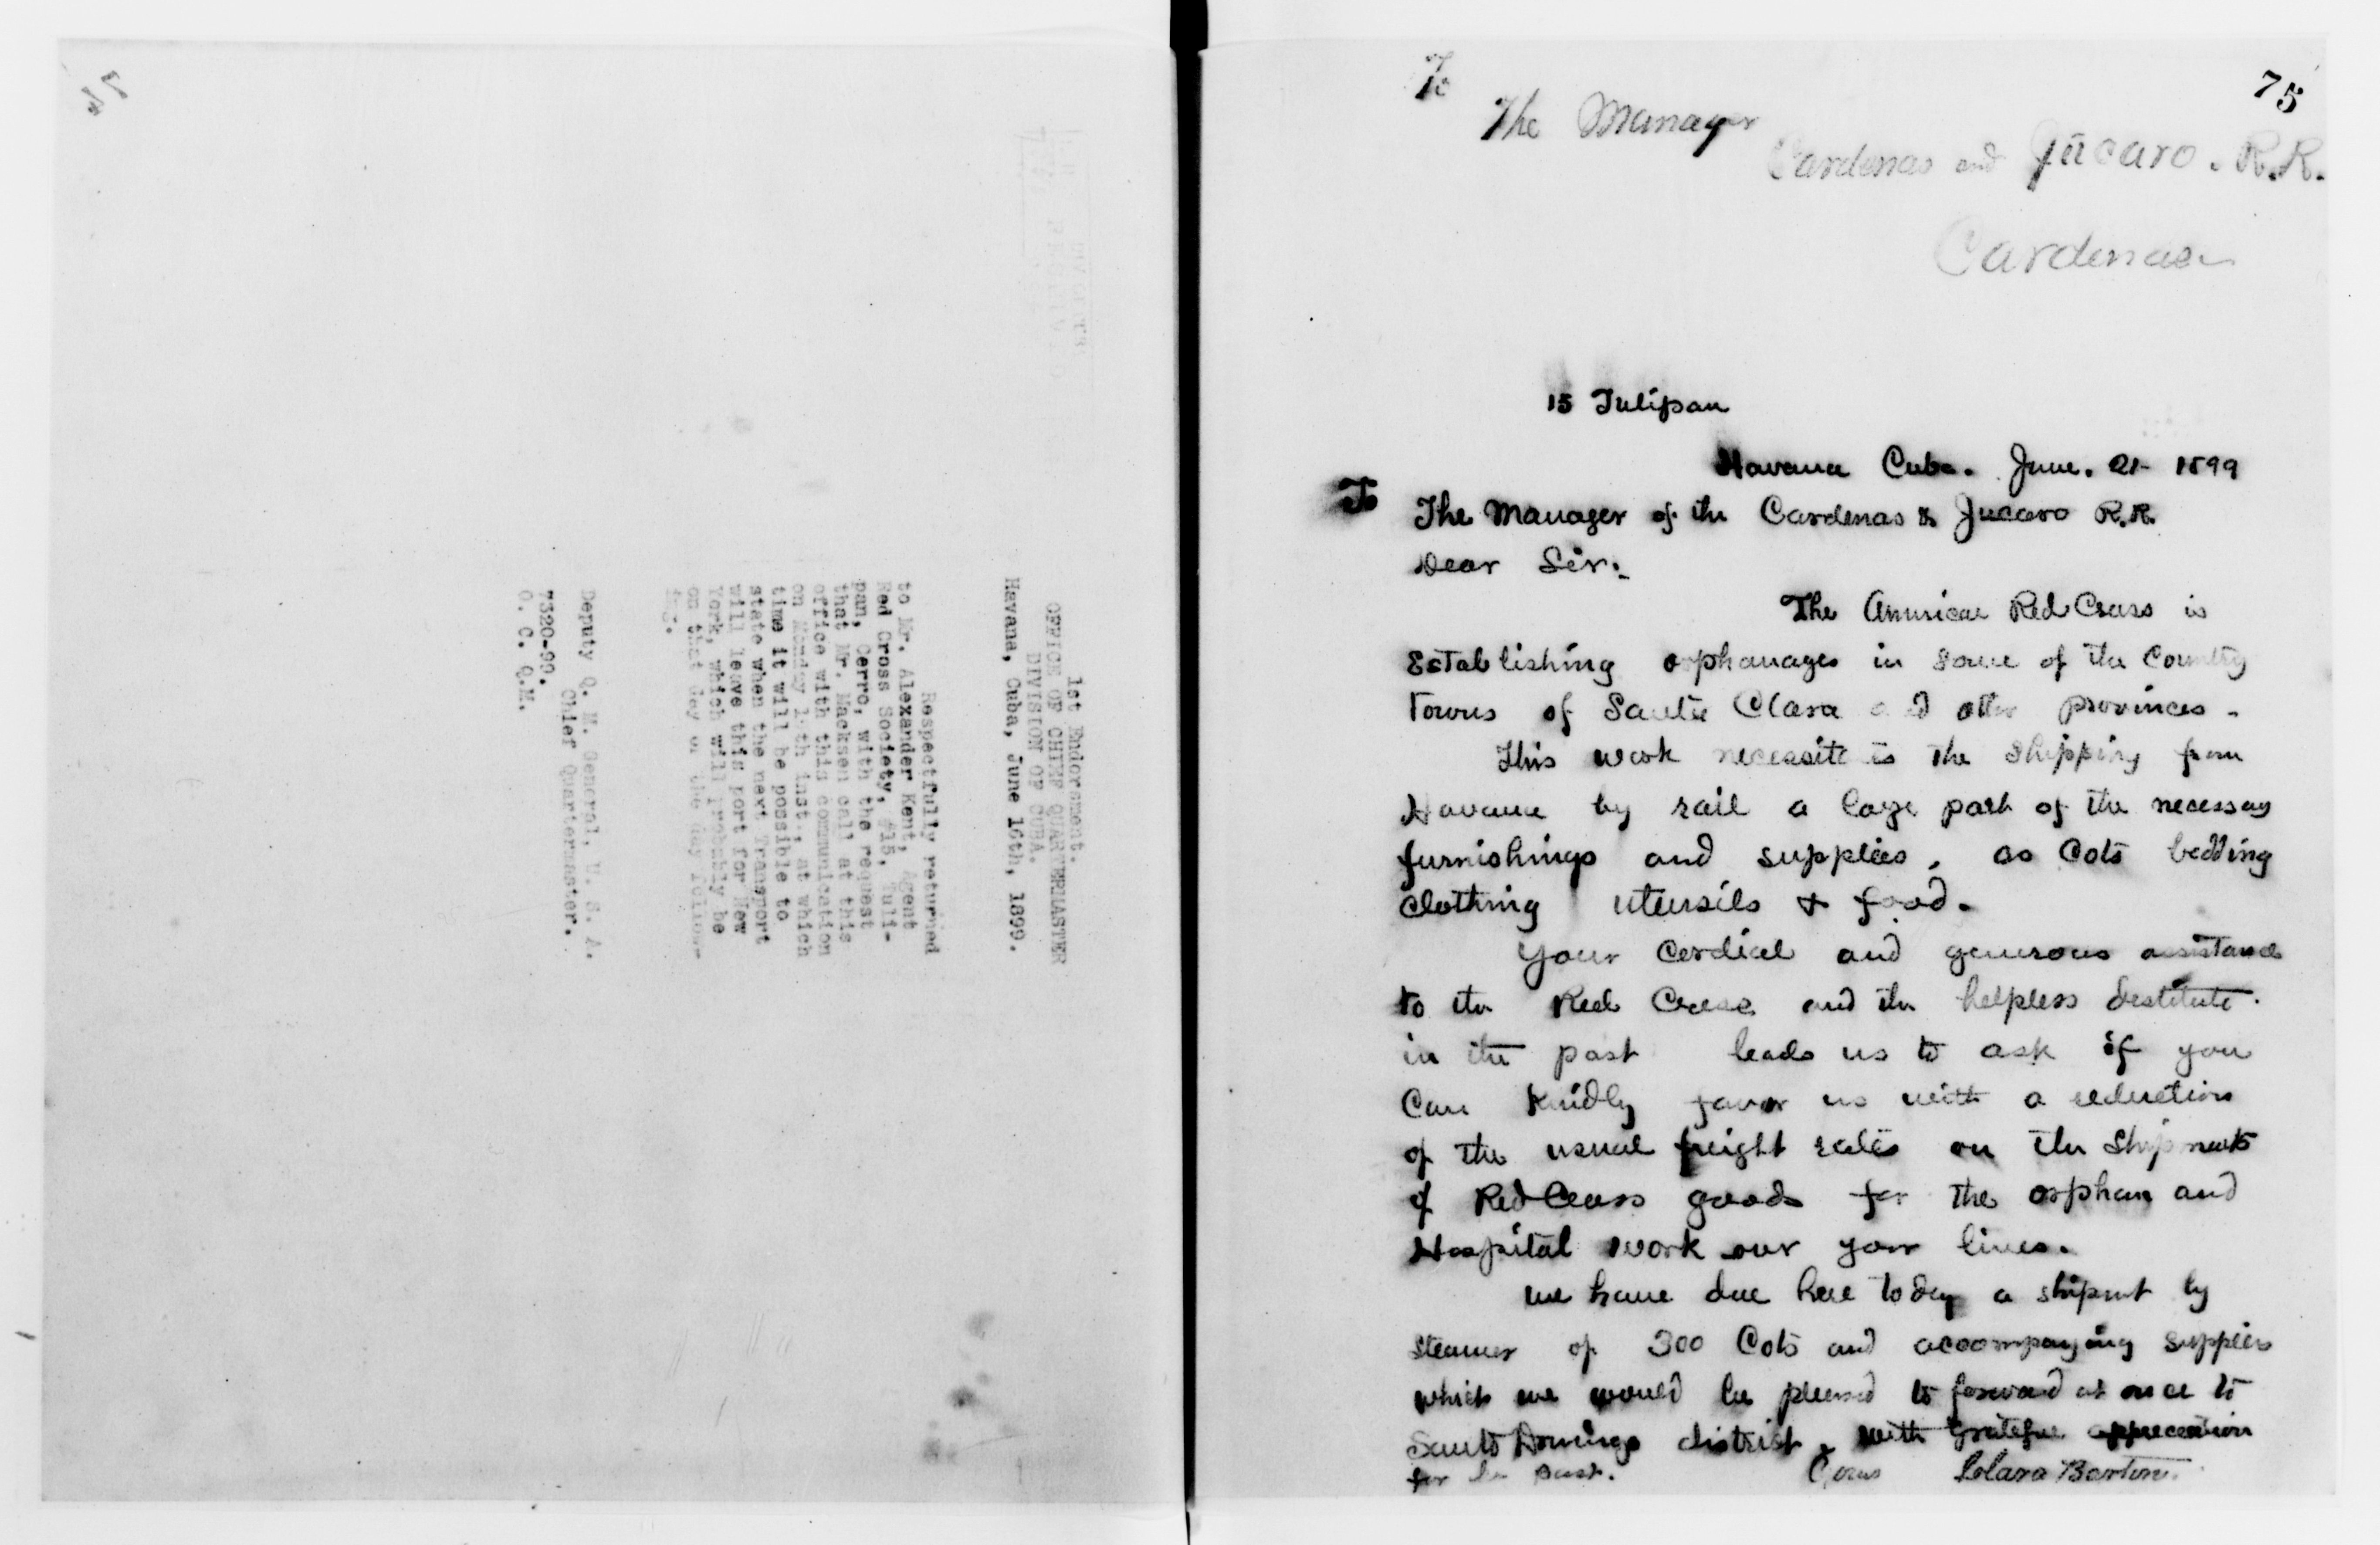 74
1st Endorsement.
OFFICE OF CHIEF QUARTERMASTER
DIVISION OF CUBA.
Havana, Cuba, June 16th, 1899.
Respectfully returned
to Mr. Alexander Kent, Agent
Red Cross Society, #15, Tuli-
pan, Cerro, with the request
that Mr. Macksen call at this
office with this communication
on Monday inst., at which
time it will be possible to
state when the next Transport
will leave this port for New
York, which will probably be
on that day or the day follow-
ing.
Deputy Q. M. General, U. S. A.
Chief Quartermaster.
7320-99.
O. C. Q.M.
75
To
The Manager
Cardenas and Júcaro. R.R.
Cardenas
15 Tulipan
Havana Cuba. June. 21- 1899
To
The Manager of the Cardenas & Jucaro R.R.
Dear Sir.
The American Red Cross is
Establishing orphanages in some of the Country
Towns of Santa Clara and other provinces -
This work necessitates the shipping from
Havana by rail a large part of the necessary
furnishings and supplies, as Cots bedding
clothing utensils & food.
Your Cordial and generous assistance
to the Red Cross and the helpless destitute
in the past leads us to ask if you
Can kindly favor us with a reduction
of the usual freight rates on the shipments
of Red Cross goods for the orphan and
Hospital work over your lines.
We have due here today a shipmt by
steamer of 300 Cots and accompanying supplies
which we would be pleased to forward at once to
Santo Domingo district, with grateful appreciation
for the past. Yours Clara Barton.